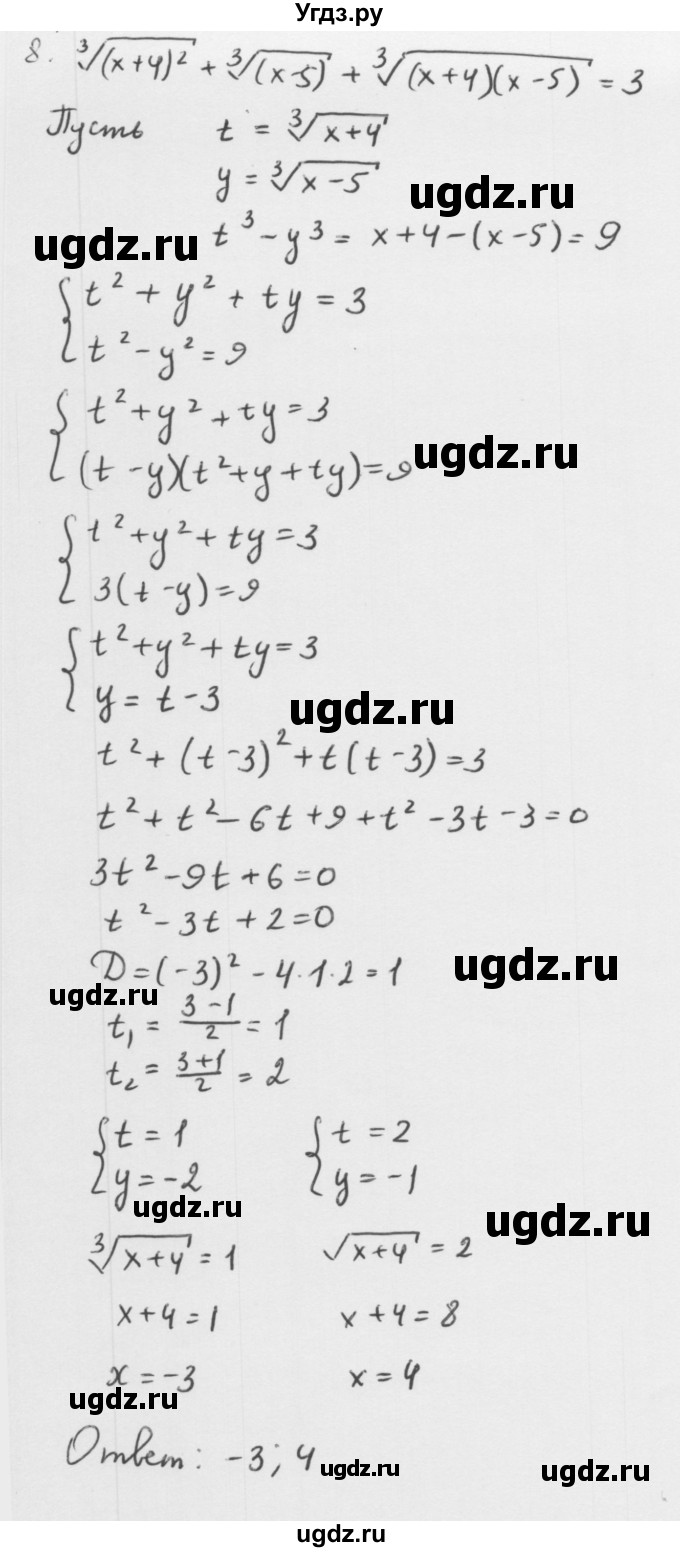 Угдз.ру
8. ∛(x+4)² + ∛(x-5) + ∛(x+4)(x-5) = 3
Пусть t = ∛x+4
y = ∛x-5
ugdz.ru
ugdz.ru
t³ - y³ = x+4-(x-5) = 9
{ t² + y² + ty = 3
t² - y² = 9
{ t² + y² + ty = 3
(t - y)(t² + y + ty) = 9
ugdz.ru
{ t² + y² + ty = 3
3(t - y) = 9
{ t² + y² + ty = 3
y = t - 3
ugdz.ru
t² + (t - 3)² + t(t - 3) = 3
t² + t² - 6t + 9 + t² - 3t - 3 = 0
3t² - 9t + 6 = 0
t² - 3t + 2 = 0
D = (-3)² - 4·1·2 = 1
ugdz.ru
ugdz.ru
t₁ = (3-1)/2 = 1
t₂ = (3+1)/2 = 2
{ t = 1 { t = 2
y = -2 y = -1
ugdz.ru
ugdz.ru
∛x+4 = 1 √x+4 = 2
x+4 = 1 x+4 = 8
x = -3 x = 4
ugdz.ru
Ответ: -3; 4
ugdz.ru
ugdz.ru
ugdz.ru